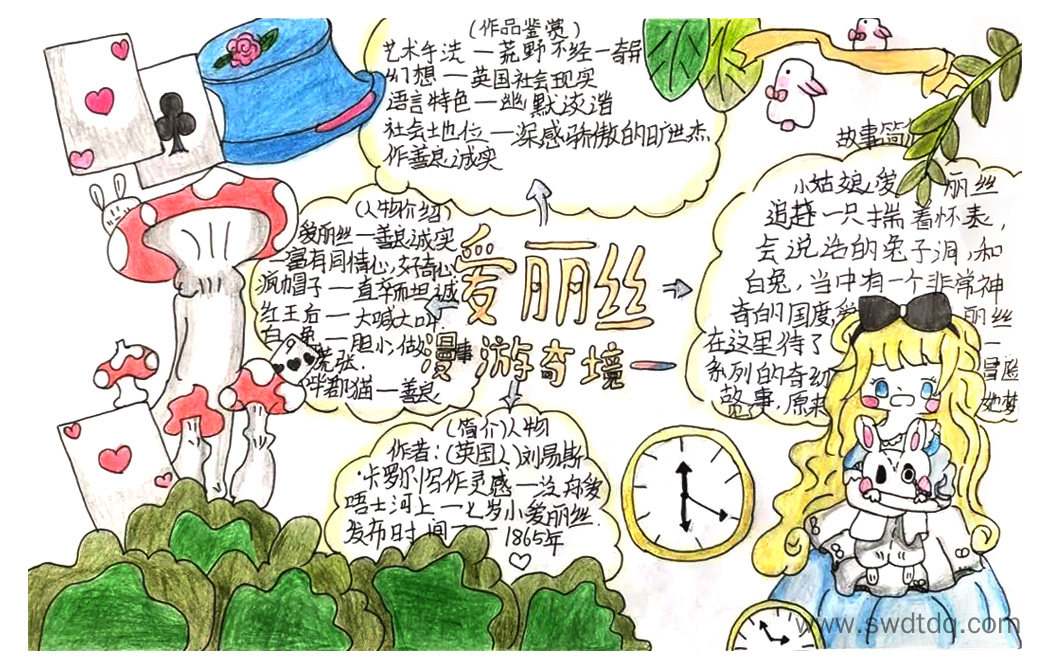 (作品鉴赏)
艺术手法一荒野不经一奇异
幻想一英国社会现实
语言特色一幽默诙谐
社会土地位一深感骄傲的旷世杰
作善良诚实
故事简
小姑娘爱丽丝
追赶一只揣着怀表,
会说话的兔子洞,和
白兔,当中有一个非常神
奇的国度,爱丽丝
在这里待了一
系列的奇幻冒险
故事,原来她梦
(人物介绍)
爱丽丝一善良诚实
一富有同情心,好奇心
疯帽子一直率而坦诚
红王后一大喊大叫
白兔一胆小,做事
慌张.
咩郡猫一善良
爱丽丝
漫游奇境
(简介)人物
作者:(英国人)刘易斯
卡罗尔写作灵感一泛舟爱
唔士河上一七岁小爱丽丝.
发布日时间一一1865年
www.swdtdq.com